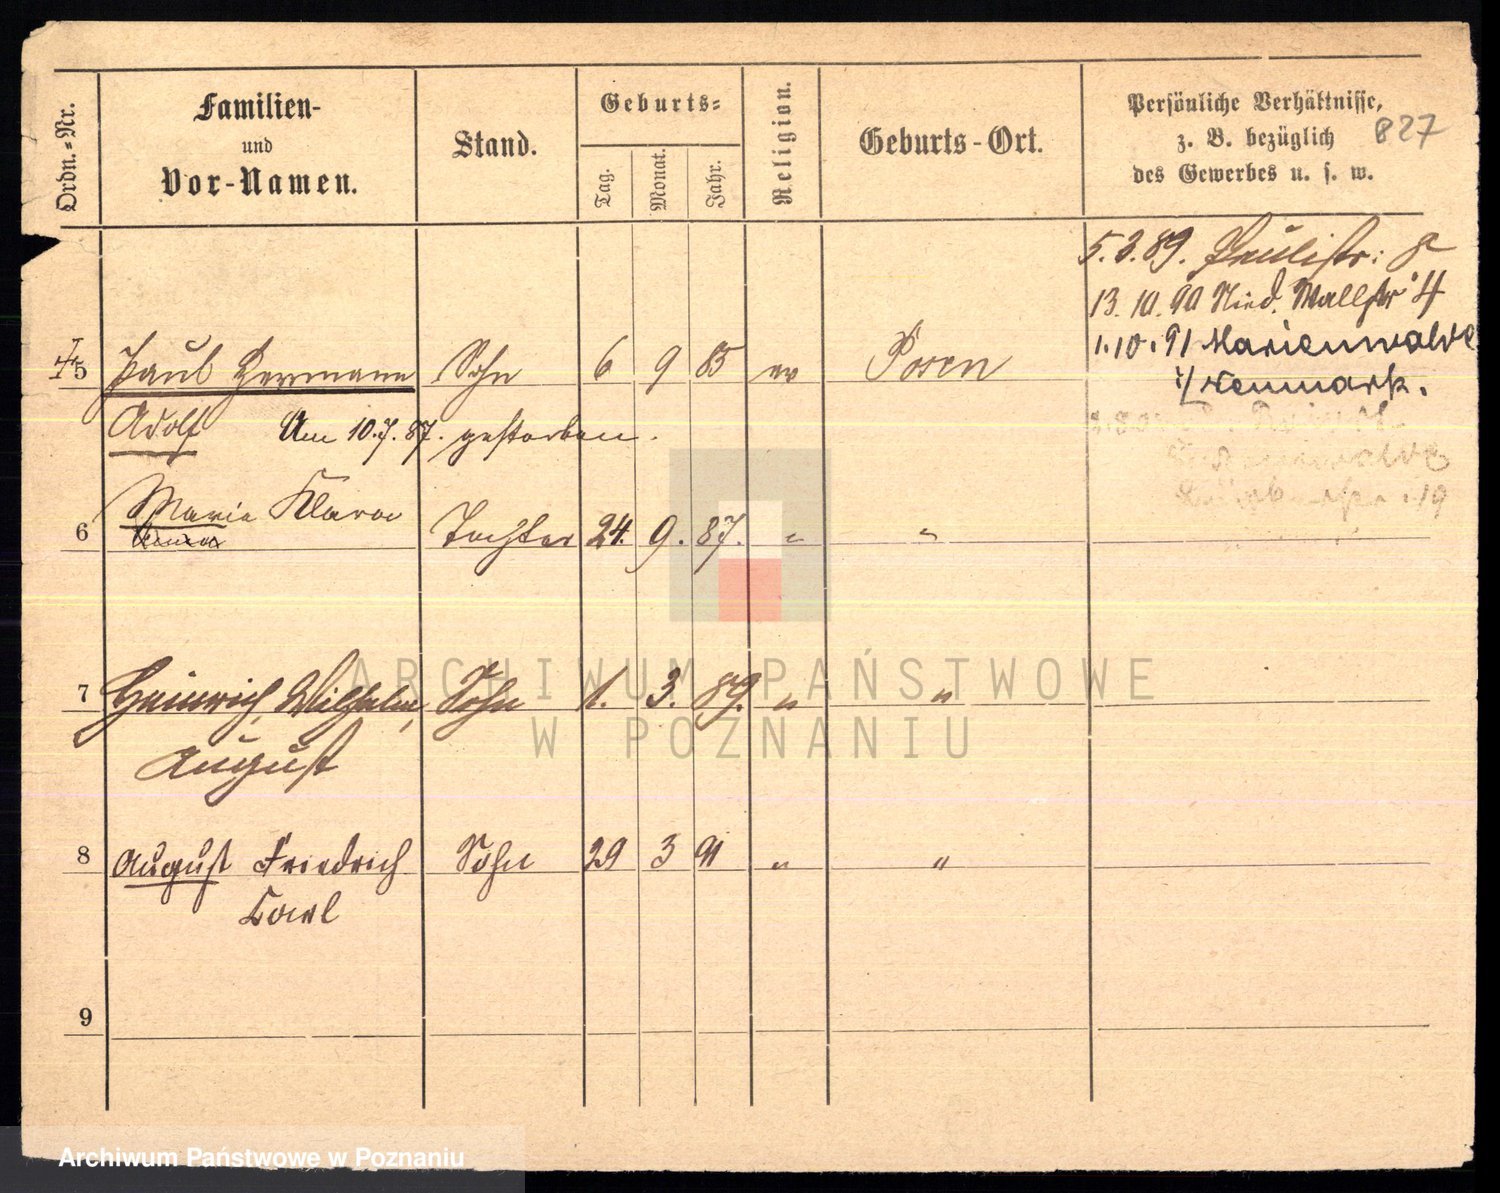 Ordn.-Nr.
Familien-
und
Vor-Namen.
Stand.
Geburts-
Tag.
Monat.
Jahr.
Religion.
Geburts-Ort.
Persönliche Verhältnisse,
z. B. bezüglich
des Gewerbes u. s. w.
827
5.3.89. Paulistr: 8
13.10.90 Nied. Wallstr 4
1.10.91 Marienwalde
i/ Neumark.
5 Paul Hermann Sohn 6 9 85 ev Posen
Adolf Am 10.7.87. gestorben.
6 Marie Klara Tochter 24. 9. 87. " "
7 Heinrich, Wilhelm, Sohn 1. 3. 89. " "
August
8 August Friedrich Sohn 29 3 91 " "
Carl
9
ARCHIWUM PAŃSTWOWE
W POZNANIU
Archiwum Państwowe w Poznaniu